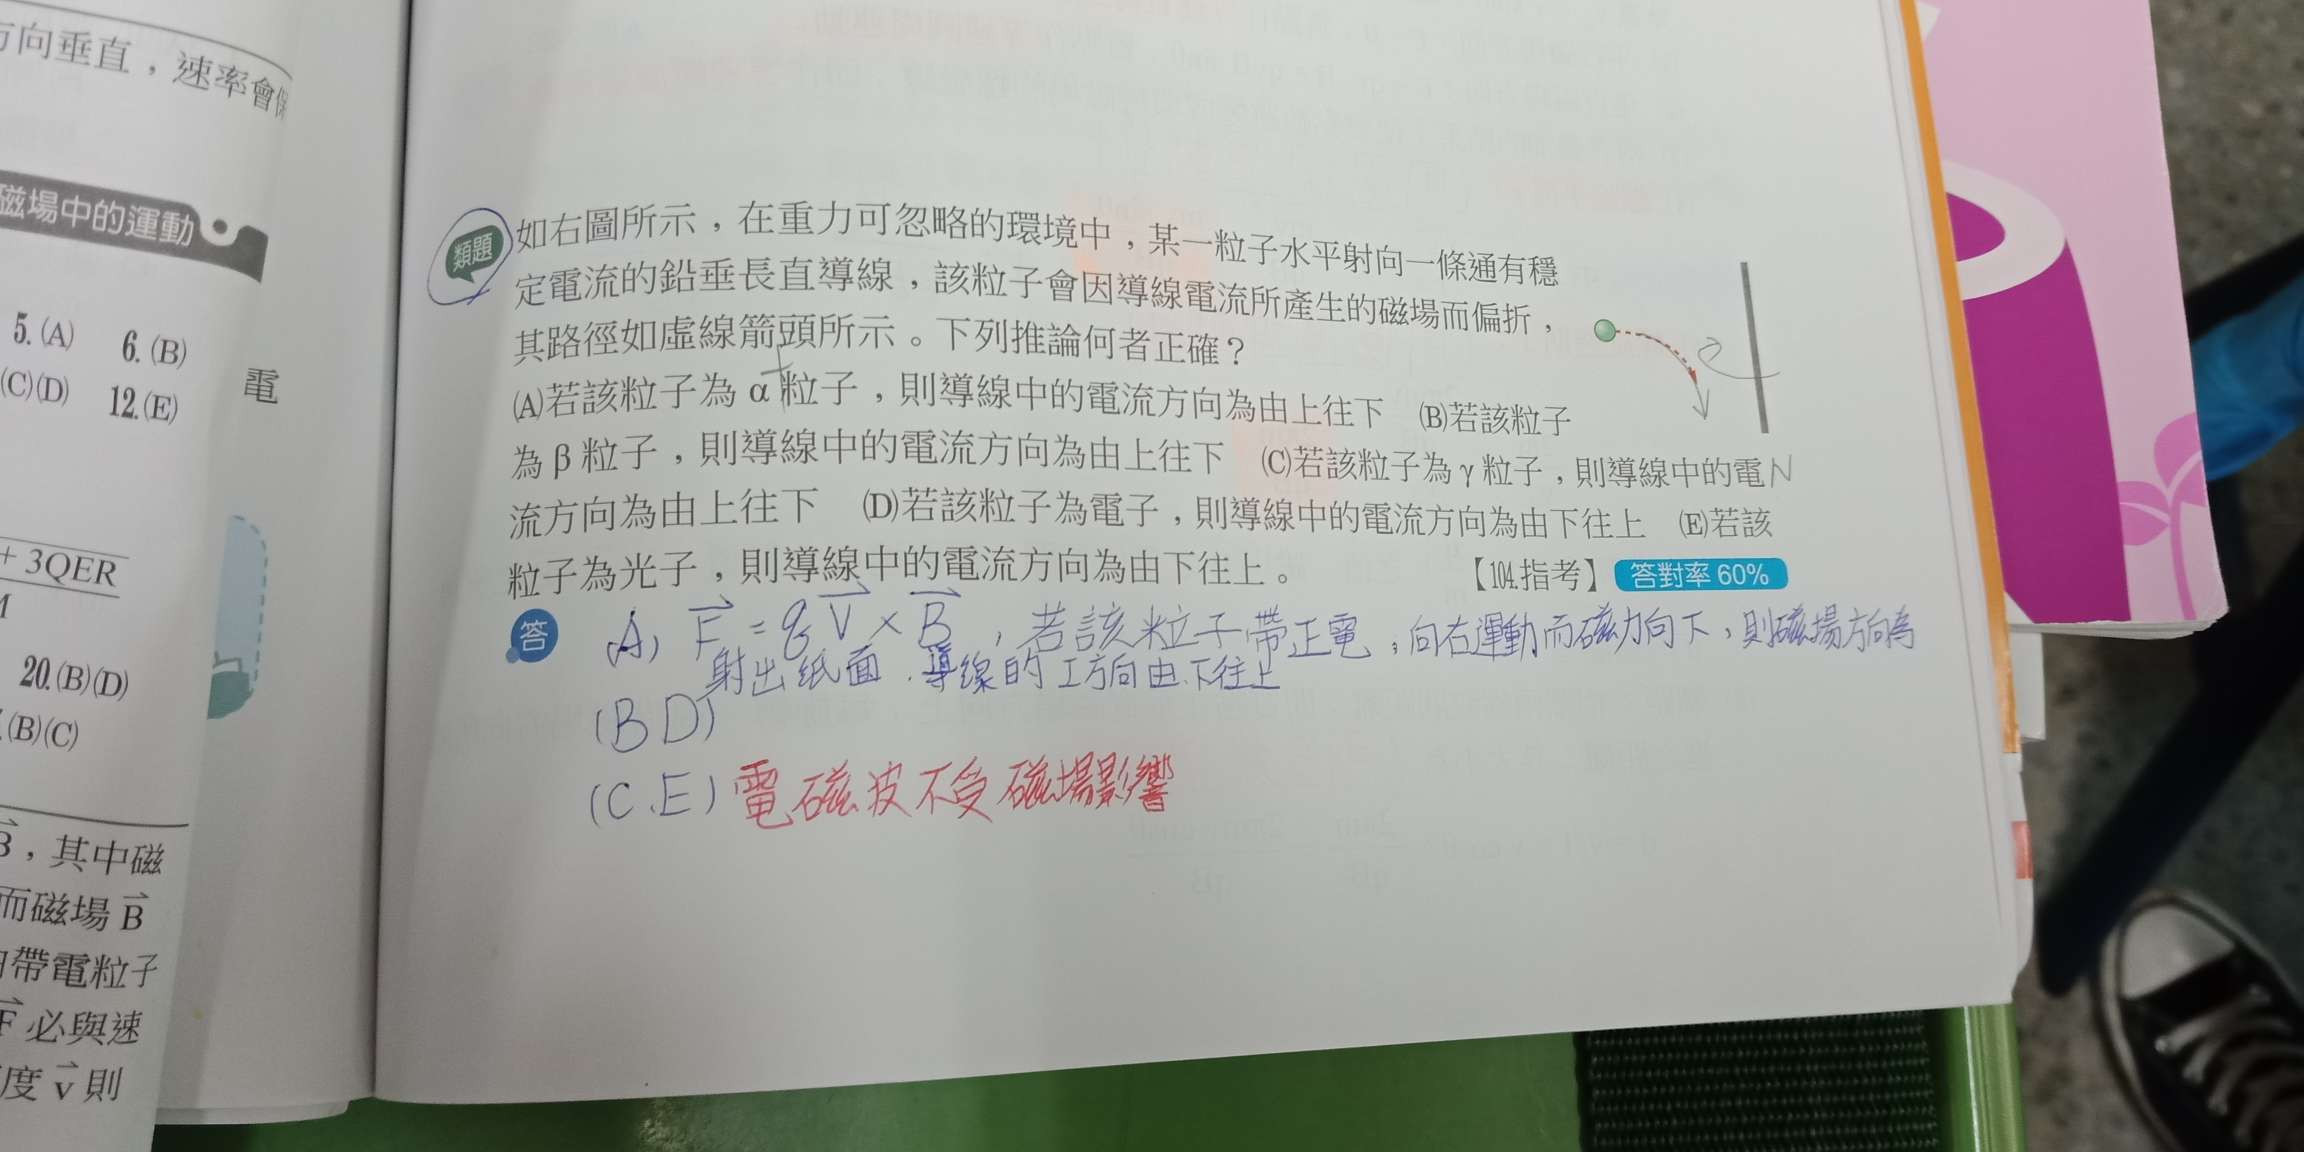 方向垂直，速率會保
磁場中的運動
5. (A) 6. (B)
(C)(D) 12. (E)
電
+ 3QER
20. (B)(D)
(B)(C)
B，其中磁
而磁場 B
帶電粒子
F 必與速
度 v 則
類題
如右圖所示，在重力可忽略的環境中，某一粒子水平射向一條通有穩
定電流的鉛垂長直導線，該粒子會因導線電流所產生的磁場而偏折，
其路徑如虛線箭頭所示。下列推論何者正確？
(A)若該粒子為 α 粒子，則導線中的電流方向為由上往下 (B)若該粒子
為 β 粒子，則導線中的電流方向為由上往下 (C)若該粒子為 γ 粒子，則導線中的電
流方向為由上往下 (D)若該粒子為電子，則導線中的電流方向為由下往上 (E)若該
粒子為光子，則導線中的電流方向為由下往上。 【104.指考】 答對率 60%
+
N
答
(A) F = qV × B，若該粒子帶正電，向右運動而磁力向下，則磁場方向為
射出紙面，導線的 I 方向由下往上
(B D)
(C、E) 電磁波不受磁場影響